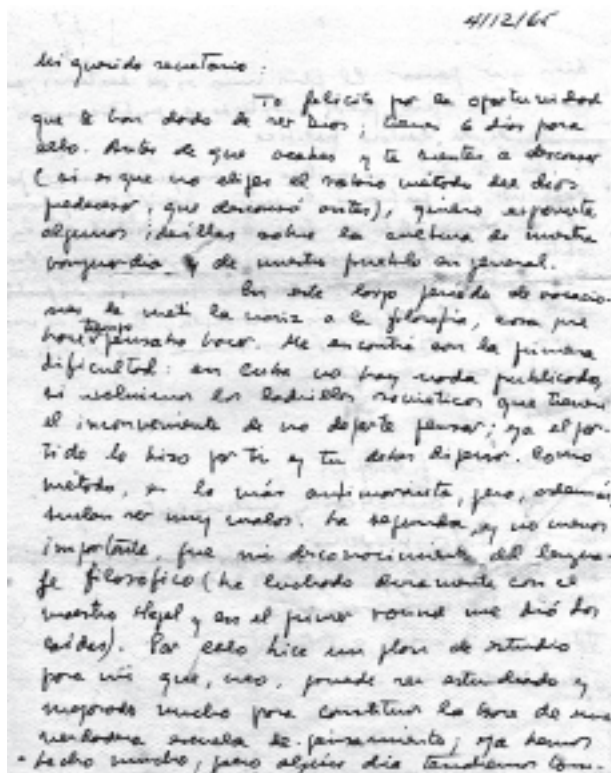 4/12/65
Mi querido secretario:
Te felicito por la oportunidad
que te han dado de ser Dios; tienes 6 días para
ello. Antes de que acabes y te sientes a descansar
(si es que no eliges el sabio método del dios
predecesor, que descansó antes), quiero exponerte
algunas ideillas sobre la cultura de nuestra
vanguardia y de nuestro pueblo en general.
En este largo período de vacacio
nes le metí la nariz a la filosofía, cosa que
hace tiempo pensaba hacer. Me encontré con la primera
dificultad: en Cuba no hay nada publicado,
si excluimos los ladrillos soviéticos que tienen
el inconveniente de no dejarte pensar; ya el par-
tido lo hizo por ti y tu debes digerir. Como
método, es lo más antimarxista, pero, además
suelen ser muy malos. La segunda, y no menos
importante, fue mi desconocimiento del lengua-
je filosófico (he luchado duramente con el
maestro Hegel y en el primer round me dió dos
caídas). Por ello hice un plan de estudio
para mí que, creo, puede ser estudiado y
mejorado mucho para constituir la base de una
verdadera escuela de pensamiento; ya hemos
hecho mucho, pero algún día tendremos tam-